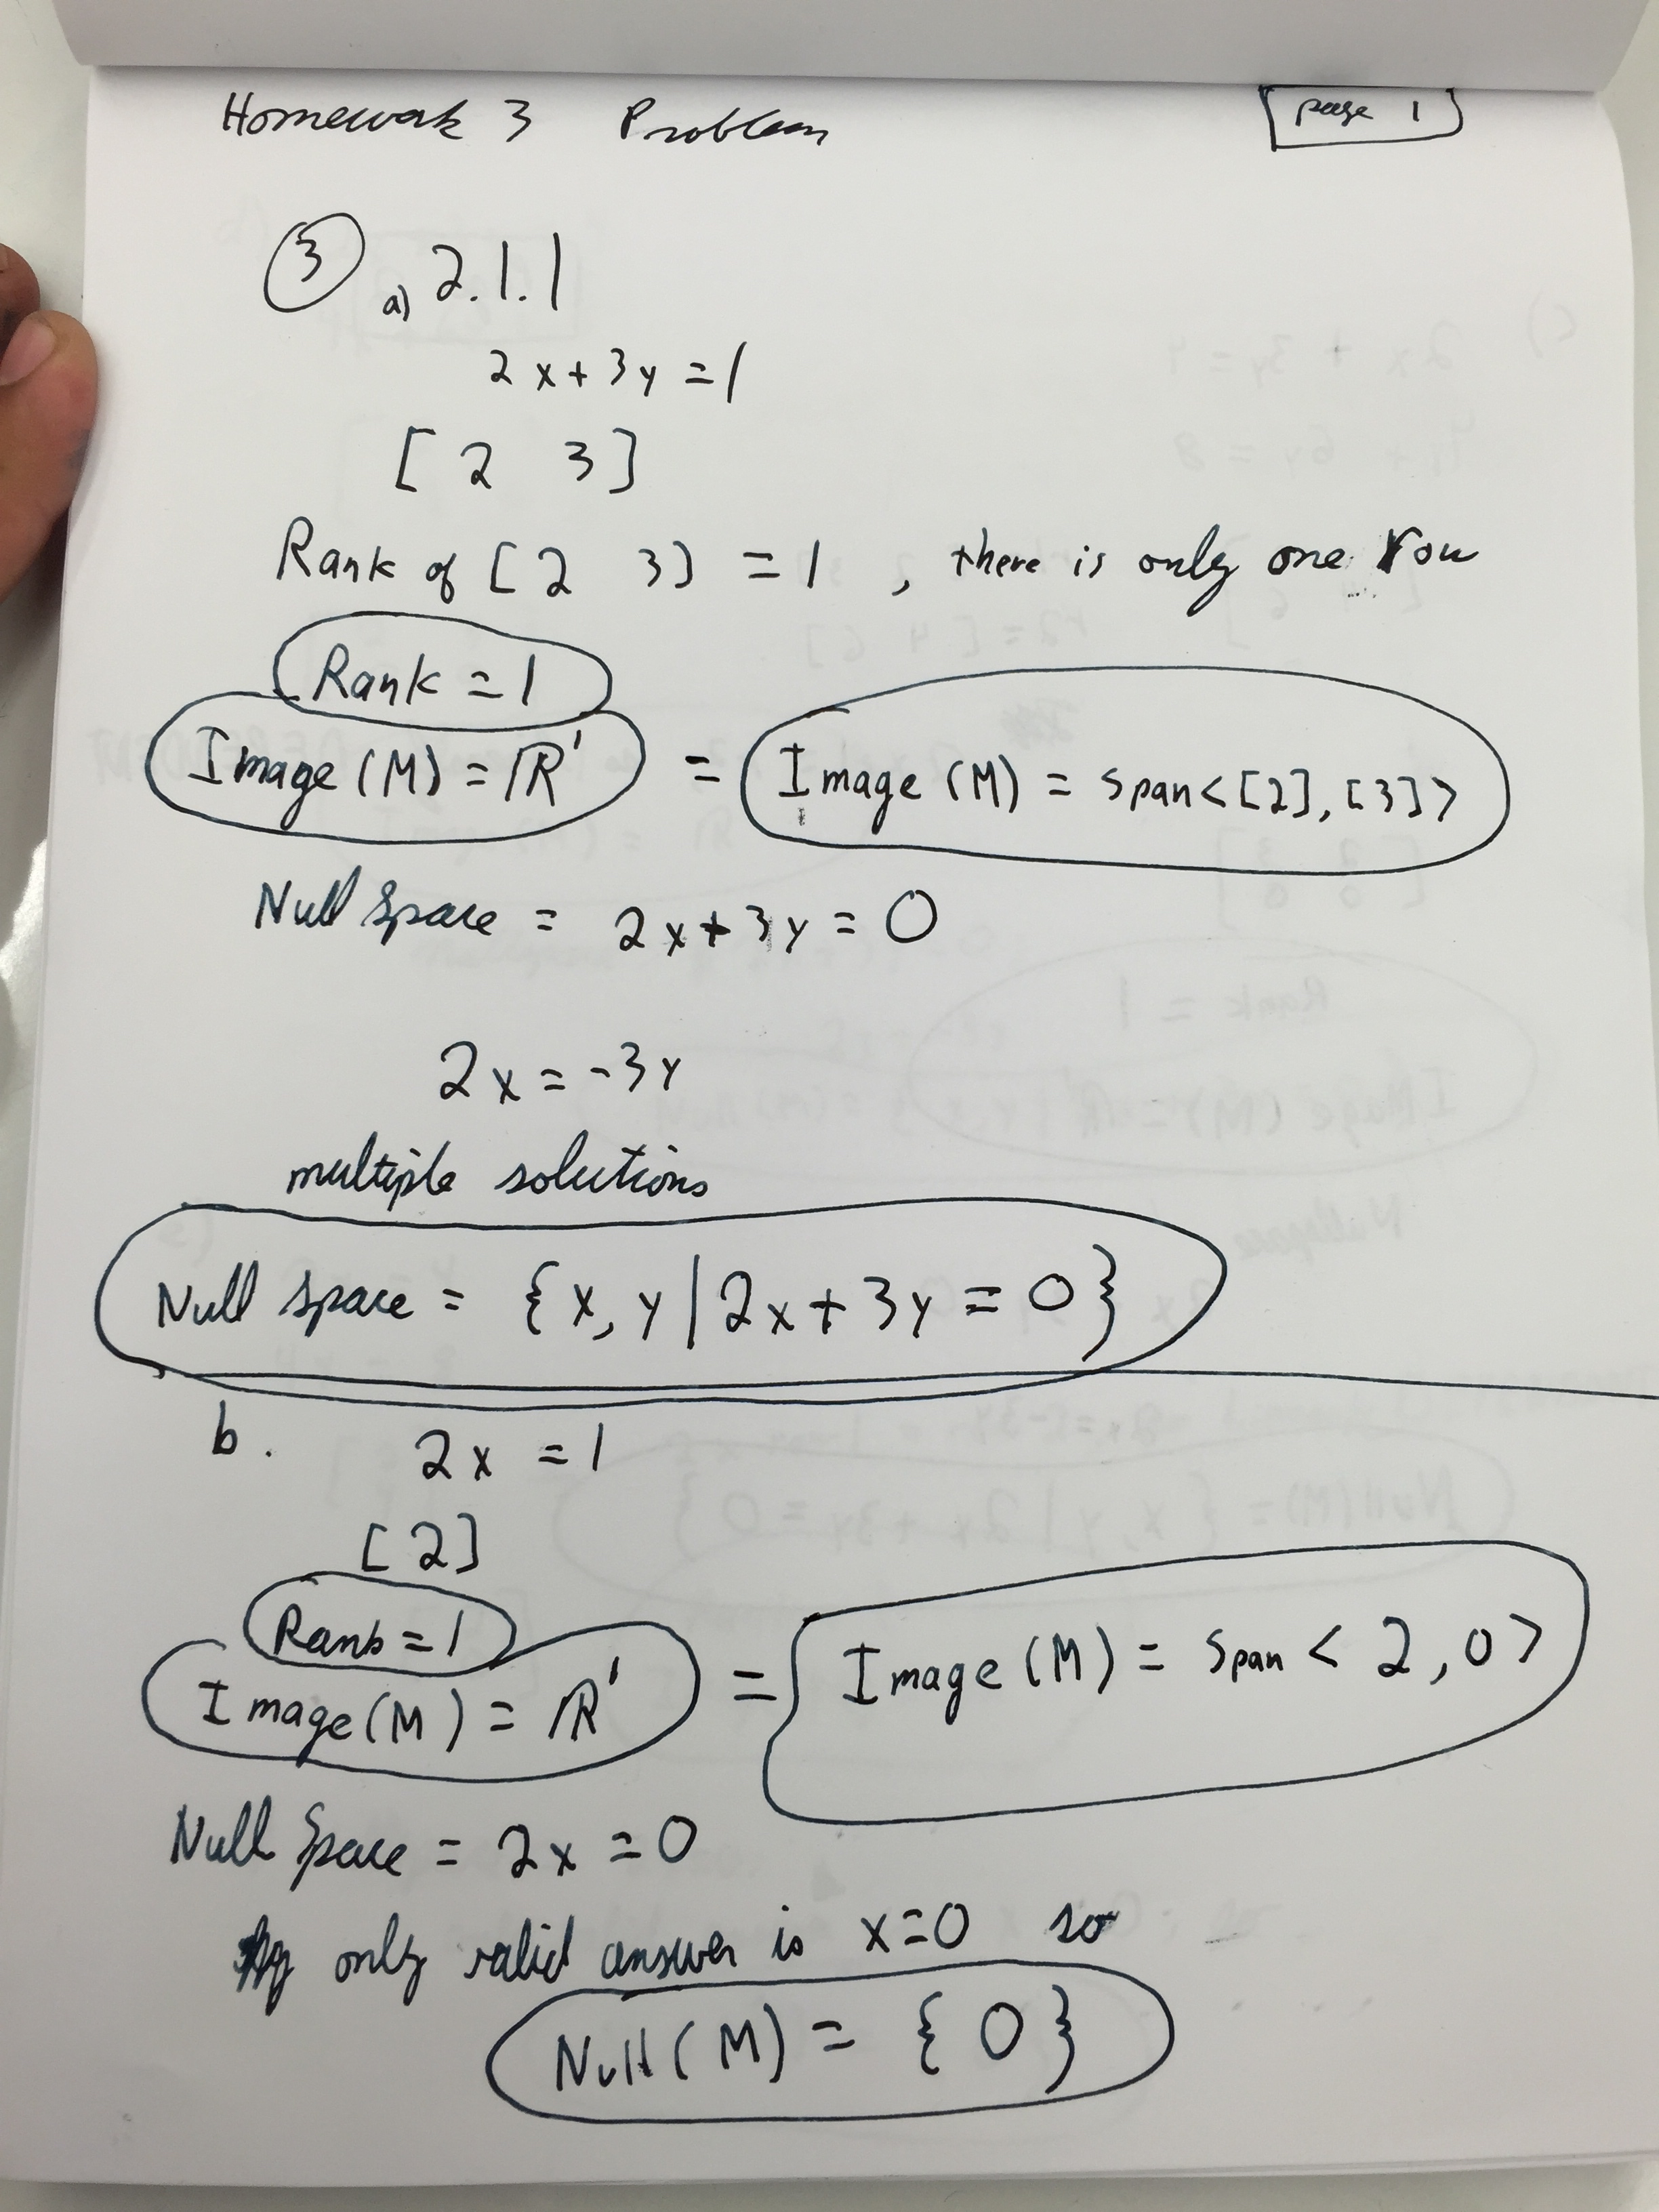 Homework 3 Problem
page 1
3 a) 2.1.1
2x + 3y = 1
[ 2 3 ]
Rank of [ 2 3 ] = 1 , there is only one row
Rank = 1
Image (M) = ℝ¹ = Image (M) = span < [2], [3] >
Null Space = 2x + 3y = 0
2x = -3y
multiple solutions
Null space = { x, y | 2x + 3y = 0 }
b. 2x = 1
[ 2 ]
Rank = 1
Image (M) = ℝ¹ = Image (M) = span < 2, 0 >
Null Space = 2x = 0
only valid answer is x = 0 so
Null (M) = { 0 }